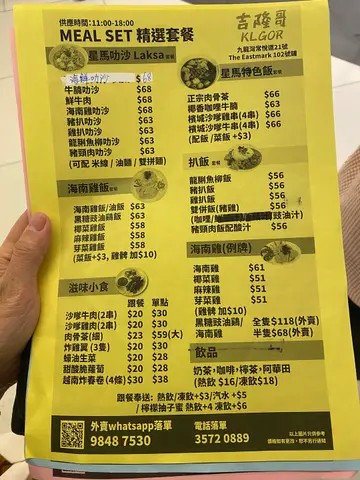 供應時間:11:00-18:00
MEAL SET 精選套餐
吉隆哥
KLGOR
九龍灣常悅道21號
The Eastmark 102號鋪
星馬叻沙 Laksa 套餐
海鮮叻沙 $68
牛腩叻沙 $68
鮮牛肉 $68
海南雞叻沙 $68
豬扒叻沙 $63
雞扒叻沙 $63
龍脷魚柳叻沙 $68
豬頸肉叻沙 $68
(可配 米線 / 油麵 / 雙拼麵)
海南雞飯 套餐
海南雞飯/油飯 $63
黑糖豉油雞飯 $63
椰菜雞飯 $58
麻辣雞飯 $58
芽菜雞飯 $58
(菜飯+$3, 雞髀 加$10)
滋味小食
跟餐 單點
沙嗲牛肉(2串) $20 $30
沙嗲雞肉(2串) $20 $30
肉骨茶(細) $23 $59(大)
炸雞翼 (3隻) $20 $30
蠔油生菜 $20 $28
甜酸脆蘿蔔 $20 $28
越南炸春卷 (4條) $30 $38
星馬特色飯 套餐
正宗肉骨茶 $66
椰香咖哩牛腩 $63
檳城沙嗲雞串(4串) $66
檳城沙嗲牛串(4串) $66
(配飯 /菜飯 +$3)
扒飯 套餐
龍脷魚柳飯 $56
豬扒飯 $56
雞扒飯 $56
雙併飯(豬雞) $56
(咖哩/ 豉油汁)
豬頸肉飯配酸汁 $56
海南雞(例牌)
海南雞 $61
椰菜雞 $51
麻辣雞 $51
芽菜雞 $51
(雞髀 加$10)
黑糖豉油雞/ 全隻$118(外賣)
海南雞 半隻$68(外賣)
飲品
奶茶,咖啡,檸茶,阿華田
(熱飲 $16/凍飲$18)
跟餐奉送: 熱飲/凍飲+$3/汽水 +$5
/ 檸檬柚子蜜 熱飲+4 凍飲+$6
外賣whatsapp落單
9848 7530
電話落單
3572 0889
以上圖片只供參考
價格如有更改，恕不另行通知